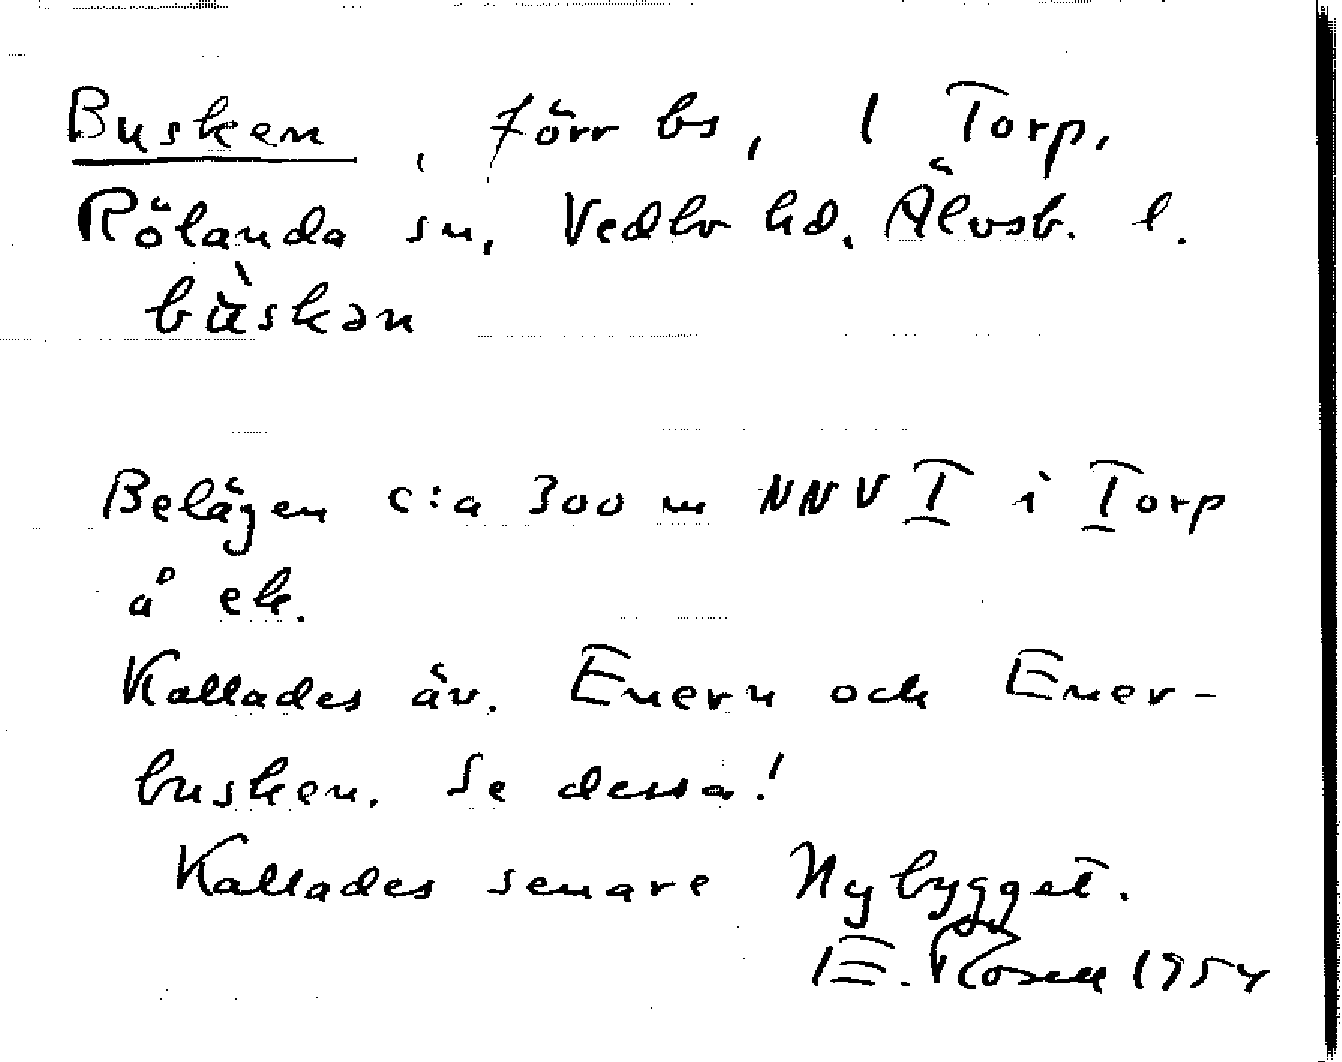 Busken, förr bs, 1 Torp,
Rölanda sn, Vedbo hd. Älvsb. l.
bùskən
Belägen c:a 300 m NNV I i Torp
å ek.
Kallades äv. Enern och Ener-
busken. Se dessa!
Kallades senare Nybygget.
E. Rosell 1954